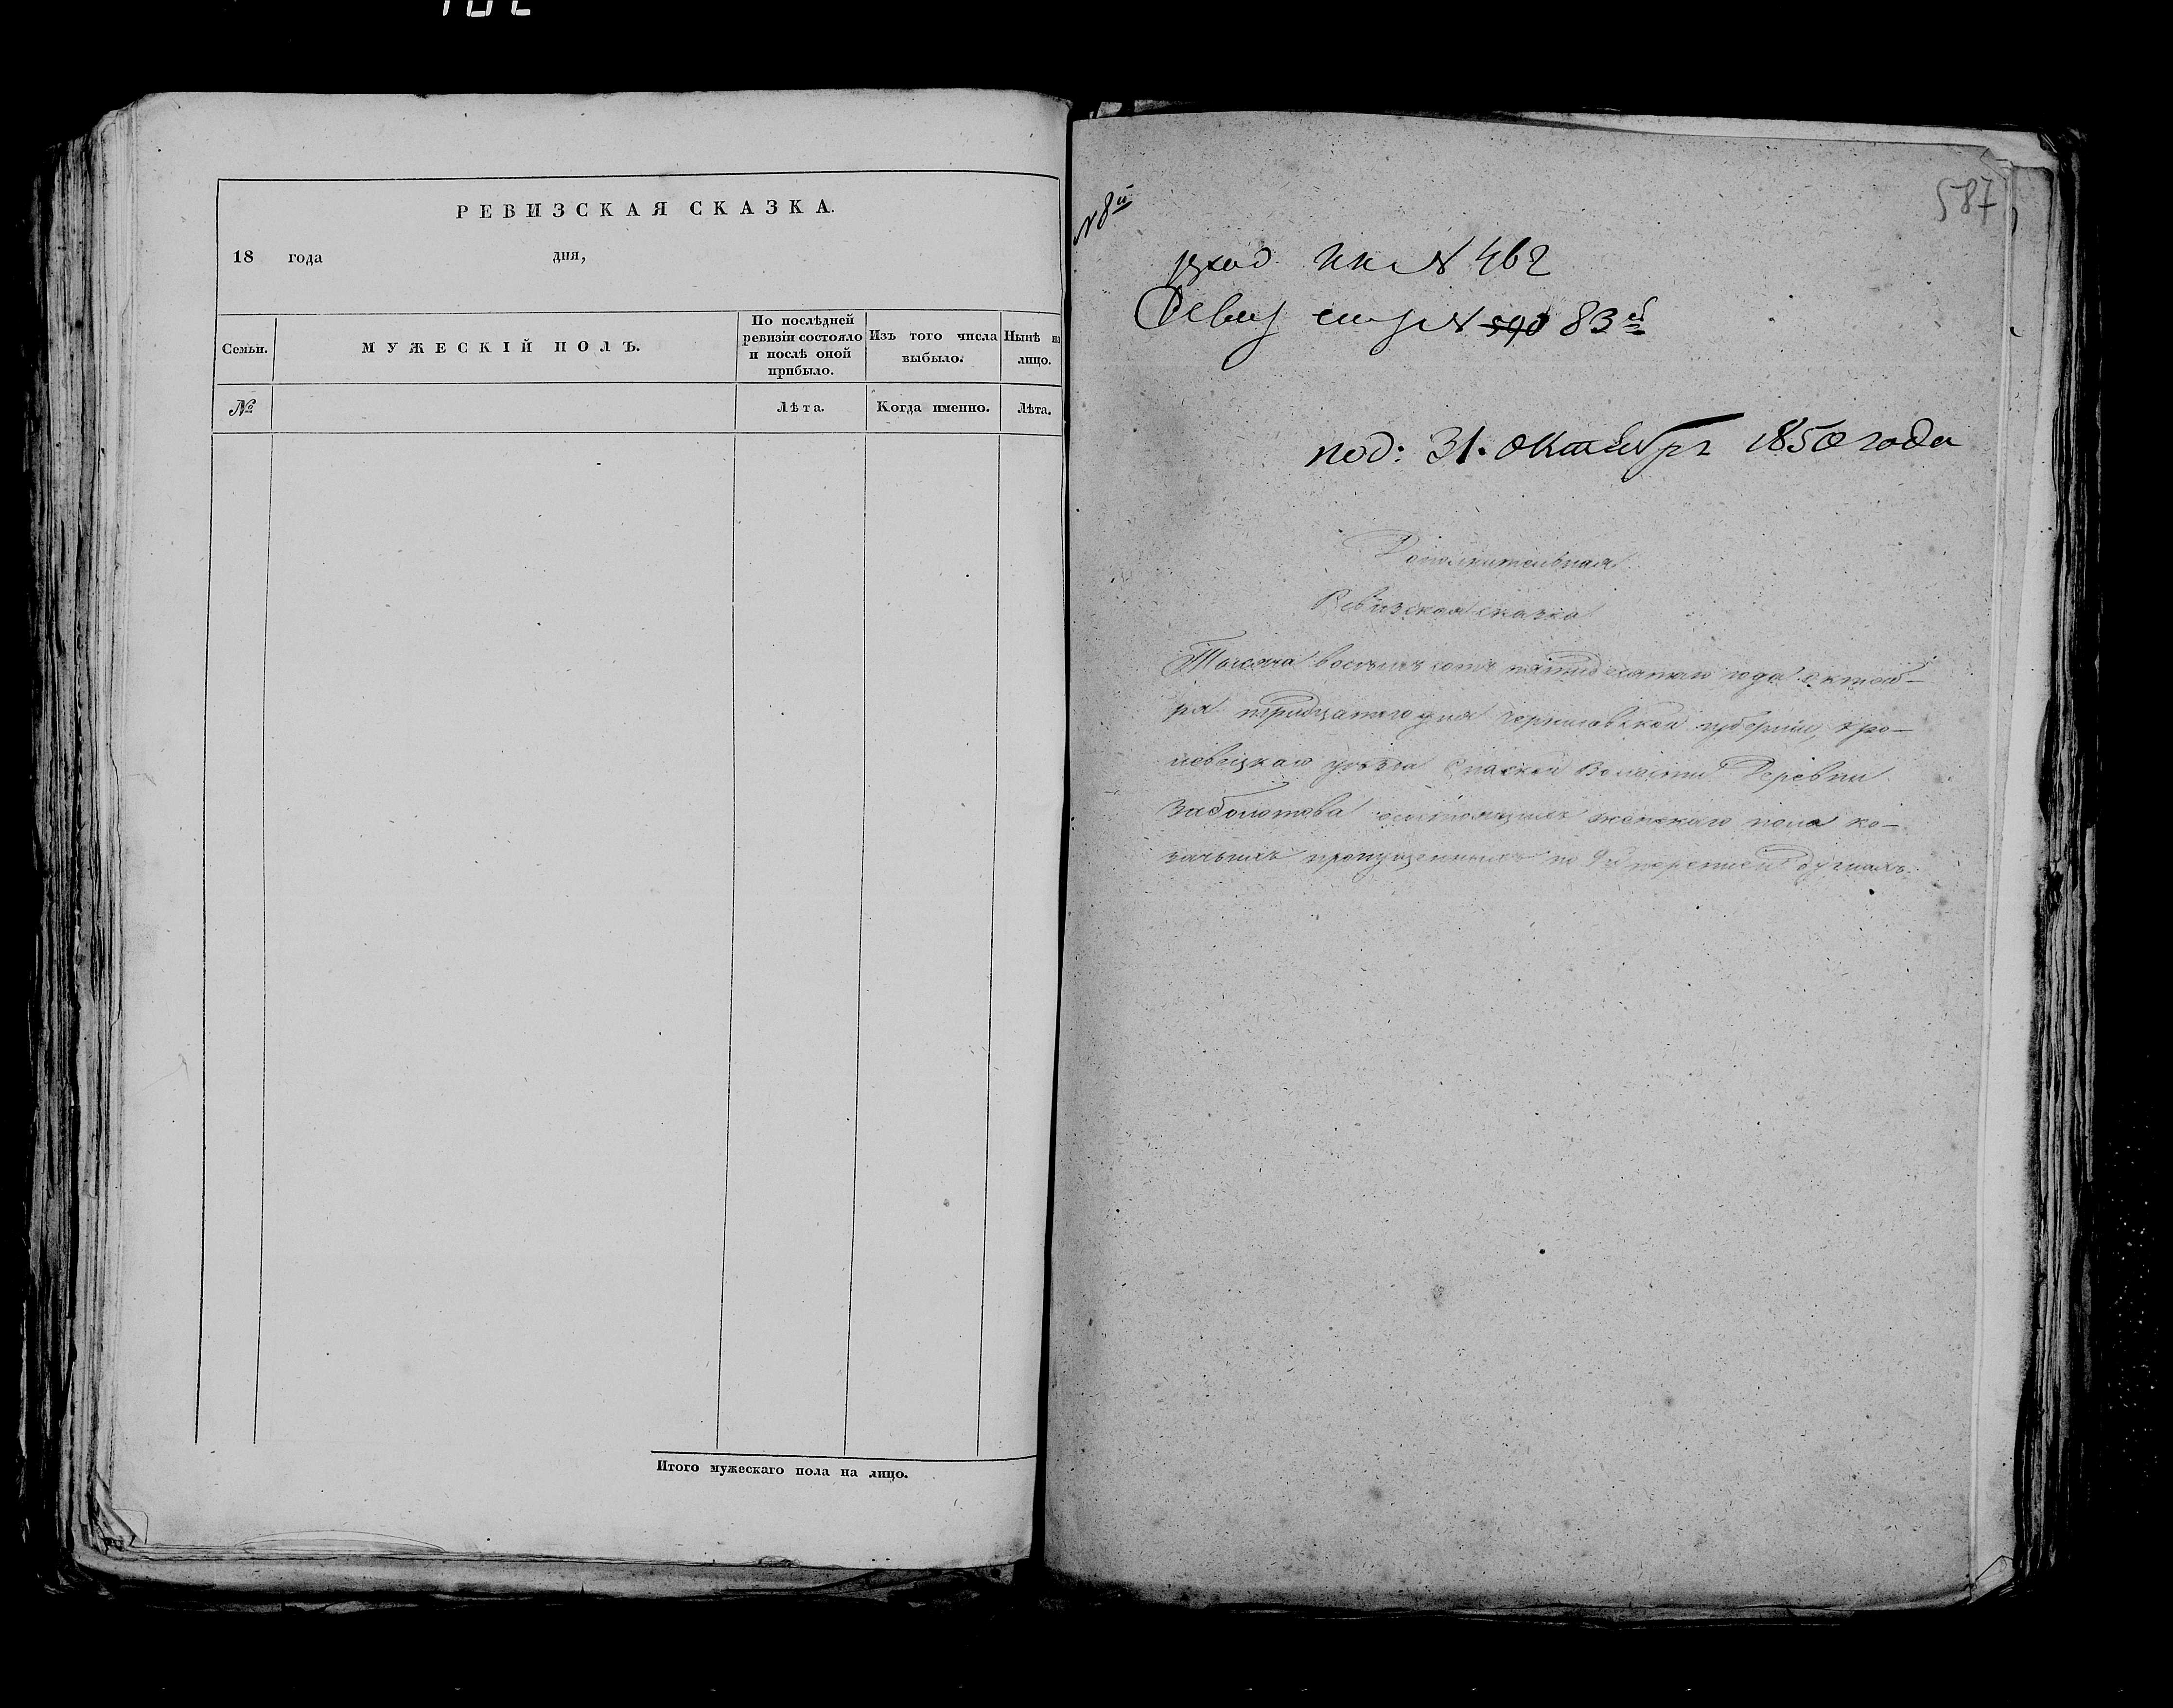 РЕВИЗСКАЯ СКАЗКА.
18 года дня,
Семьи.
МУЖЕСКІЙ ПОЛЪ.
По послѣдней
ревизіи состояло
и послѣ оной
прибыло.
Изъ того числа
выбыло.
Нынѣ на
лицо.
№
Лѣта.
Когда именно.
Лѣта.
Итого мужескаго пола на лицо.
587
№ 8й
вход №462
Ревиз № 590 83й
под: 31. Октября 1850 года
Дополнительная
Ревизская сказка
Тысяча восемь сотъ пятидесятаго года октяб-
ря тридцатого дня Черниговской губерніи, Кро-
левецкаго уезда Спаской Волости Деревни
Заболотова состоящихъ женскаго пола ко-
зачьихъ пропущенныхъ по 9й переписи душахъ.